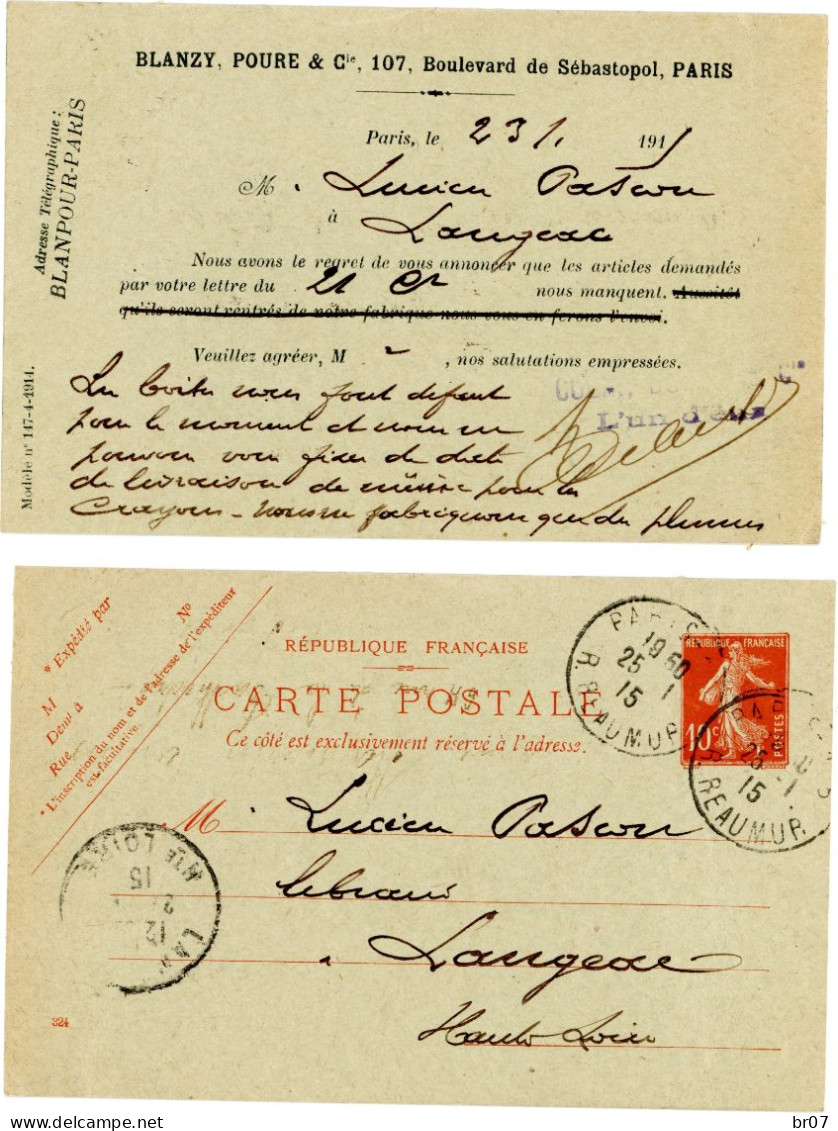 BLANZY, POURE & Cie, 107, Boulevard de Sébastopol, PARIS
Adresse Télégraphique :
BLANPOUR-PARIS
Modèle n° 147-4-1914.
Paris, le 23/1 191
M. Lucien
à Langeac
Nous avons le regret de vous annoncer que les articles demandés
par votre lettre du 21 Ct nous manquent. Aussitôt
qu'ils seront rentrés de notre fabrique nous vous en ferons l'envoi.
Veuillez agréer, M , nos salutations empressées.
L'un d'eux
Les boites nous font défaut
pour le moment et nous ne
pouvons vous fixer de date
de livraison de même pour les
Crayons - nous ne fabriquons que des plumes
* Expédié par
M N°
Demt à
Rue
* L'inscription du nom et de l'adresse de l'expéditeur
est facultative.
RÉPUBLIQUE FRANÇAISE
CARTE POSTALE
Ce côté est exclusivement réservé à l'adresse.
RÉPUBLIQUE FRANÇAISE
10c
POSTES
PARIS
19 50
25 - 1
15
R. REAUMUR
15
R. REAUMUR
M Lucien
libraire
à Langeac
Haute Loire
HTE LOIRE
15
12
324
delcampe.net
br07